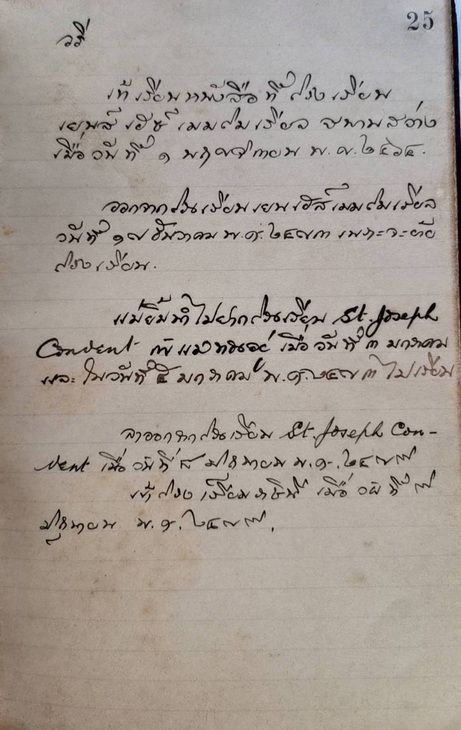 25
วที่
เข้าเรียนหนังสือที่โรงเรียน
เมมโมเรียล สพานสว่าง
เมื่อวันที่ ๑ พฤษภาคม พ.ศ. ๒๔๖๔.
ออกจากโรงเรียน เมมโมเรียล
วันที่ ๑๗ ธันวาคม พ.ศ. ๒๔๗๓ เพราะจะย้าย
โรงเรียน.
แม่ยิ้มนำไปฝากโรงเรียน St. Joseph
Convent เมื่อวันที่ ๓ มกราคม
และในวันที่ ๕ มกราคม พ.ศ. ๒๔๗๓ ไปเรียน
ลาออกจากโรงเรียน St. Joseph Con-
vent เมื่อวันที่ ๕ มิถุนายน พ.ศ. ๒๔๗๗
เข้าโรงเรียนราชินี เมื่อวันที่ ๗
มิถุนายน พ.ศ. ๒๔๗๗.